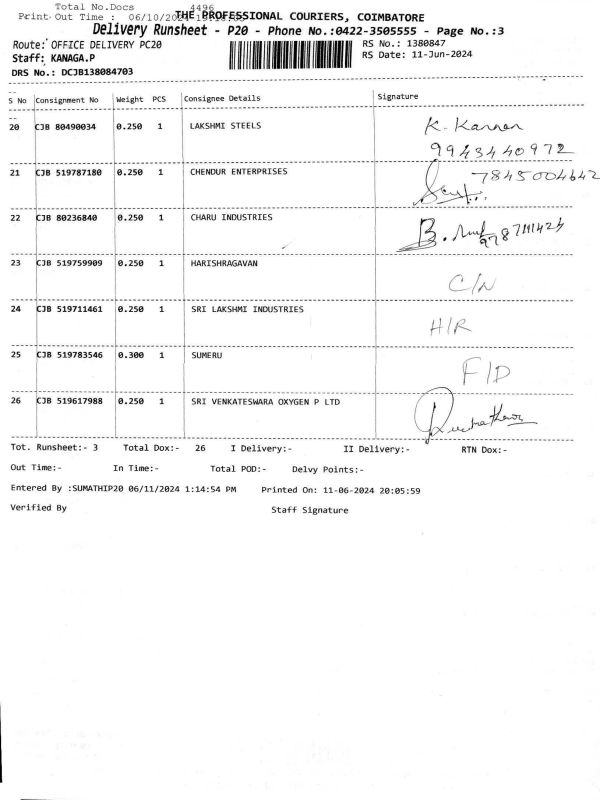 Total No.Docs 4496
Print Out Time : 06/10/2024
THE PROFESSIONAL COURIERS, COIMBATORE
Delivery Runsheet - P20 - Phone No.:0422-3505555 - Page No.:3
Route: OFFICE DELIVERY PC20
RS No.: 1380847
Staff: KANAGA.P
RS Date: 11-Jun-2024
DRS No.: DCJB138084703
S No Consignment No Weight PCS Consignee Details Signature
20 CJB 80490034 0.250 1 LAKSHMI STEELS K. Kannan
9943440972
21 CJB 519787180 0.250 1 CHENDUR ENTERPRISES 7845004642
22 CJB 80236840 0.250 1 CHARU INDUSTRIES B.
9787111424
23 CJB 519759909 0.250 1 HARISHRAGAVAN
C/N
24 CJB 519711461 0.250 1 SRI LAKSHMI INDUSTRIES
H/R
25 CJB 519783546 0.300 1 SUMERU
F/D
26 CJB 519617988 0.250 1 SRI VENKATESWARA OXYGEN P LTD
Tot. Runsheet:- 3 Total Dox:- 26 I Delivery:- II Delivery:- RTN Dox:-
Out Time:- In Time:- Total POD:- Delvy Points:-
Entered By :SUMATHIP20 06/11/2024 1:14:54 PM Printed On: 11-06-2024 20:05:59
Verified By Staff Signature